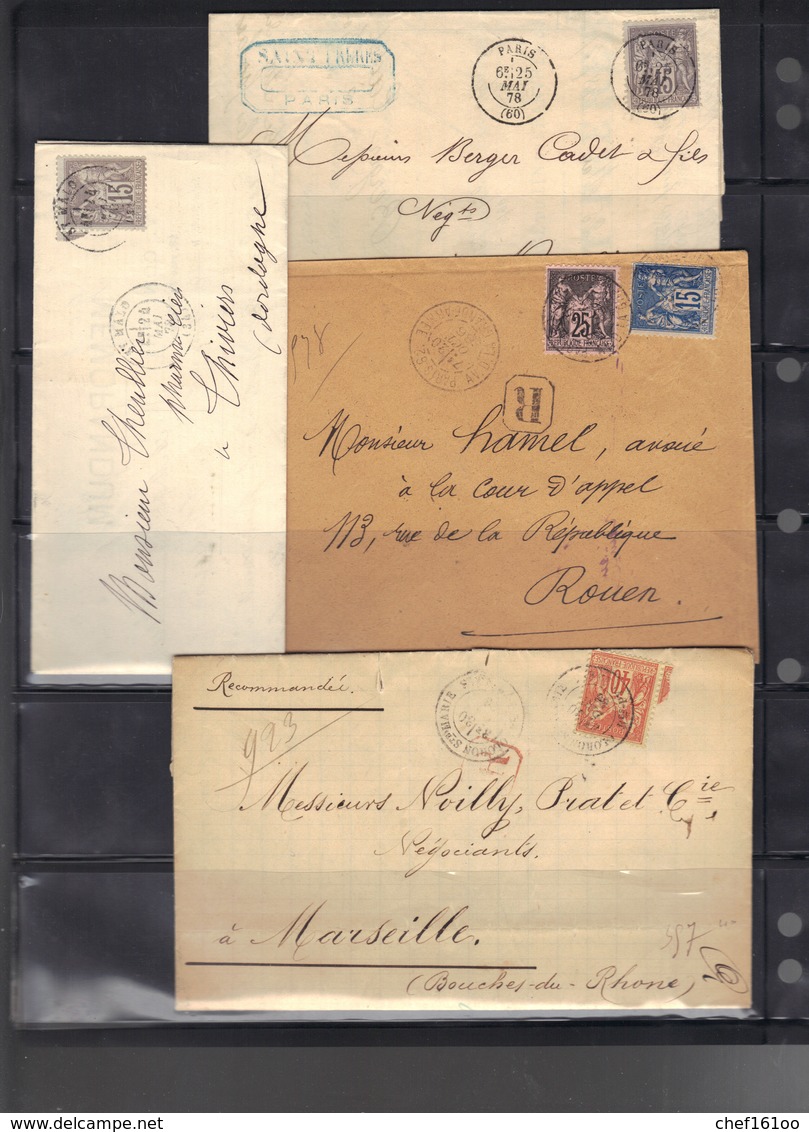 SAINT FRERES
PARIS
PARIS
6E 25
MAI
78
(60)
PARIS
MAI
78
(60)
15
Messieurs Berger Cadet & fils
Négts
15
ST MALO
ST MALO
MAI
Monsieur Theullier
pharmacien
à Thiviers
(Dordogne)
978
R
POSTES
25
REPUBLIQUE FRANÇAISE
POSTES
15
Monsieur Hamel, avoué
à la Cour d'appel
113, rue de la République
Rouen.
Recommandée.
923
40
REPUBLIQUE FRANÇAISE
Messieurs Noilly, Prat et Cie
Négociants.
à Marseille.
(Bouches-du-Rhone)
397
delcampe.net
chef16100